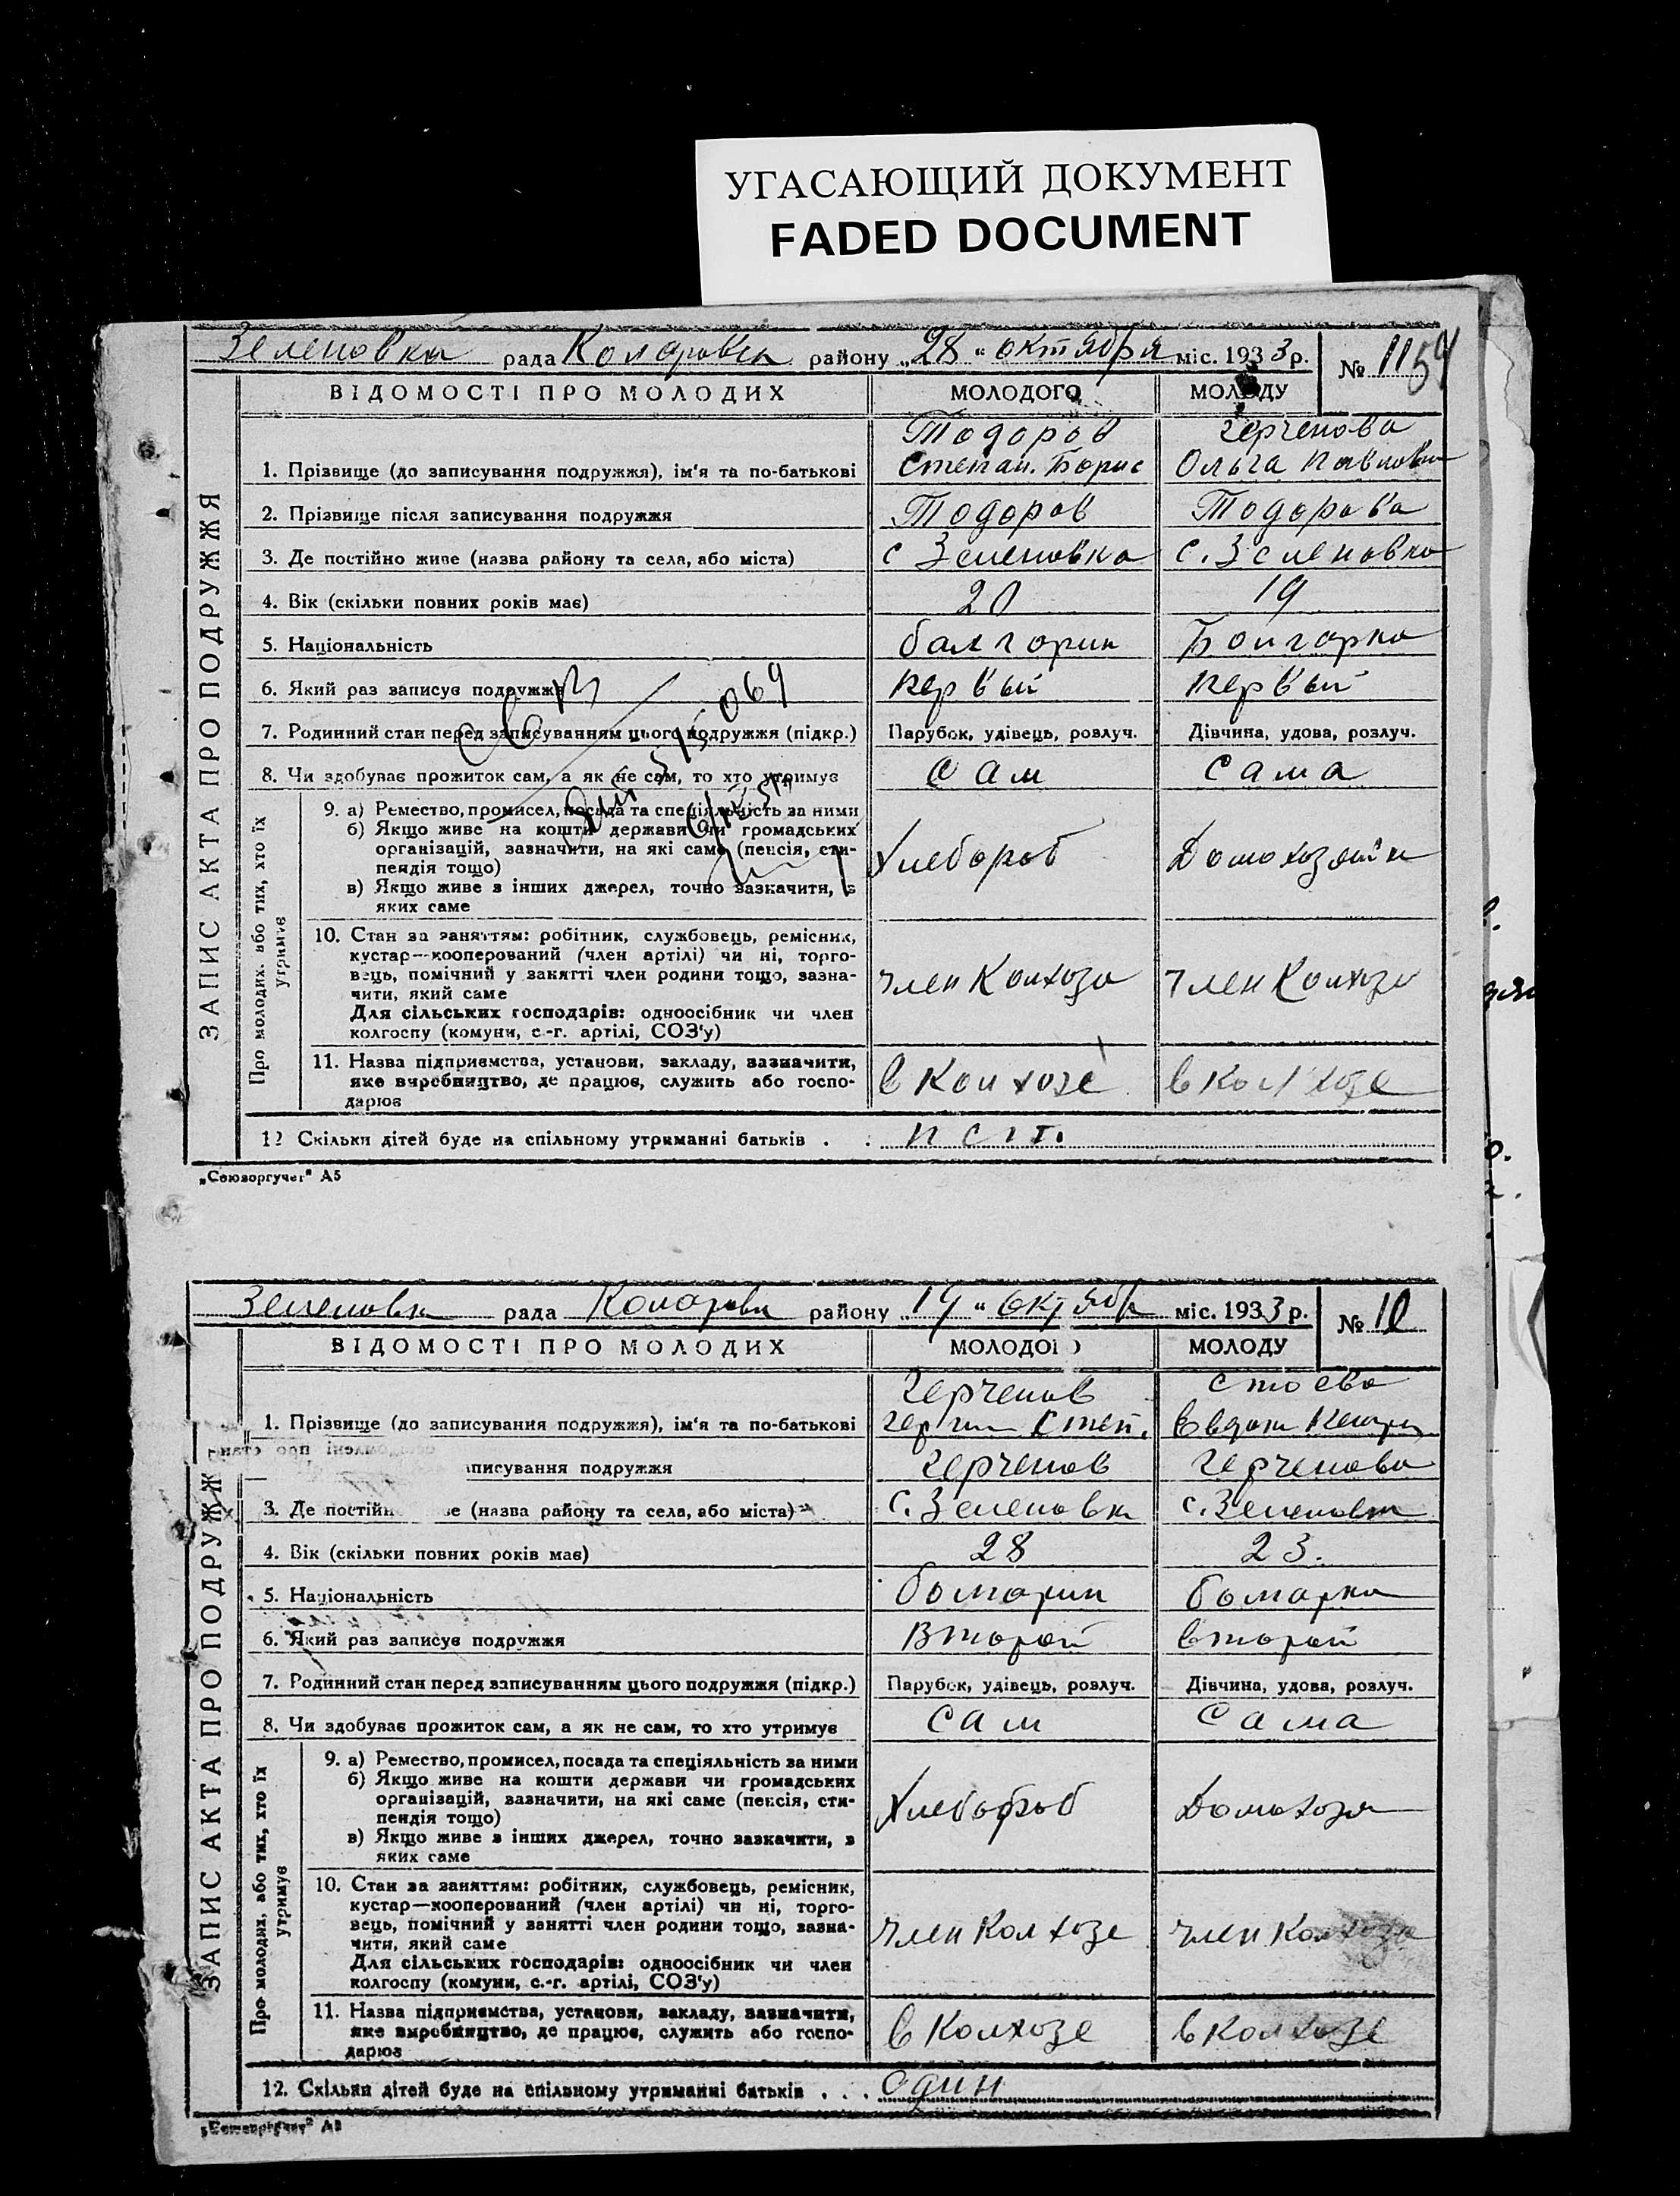 УГАСАЮЩИЙ ДОКУМЕНТ
FADED DOCUMENT
Зеленовка рада Коларовка району „28“ октября міс. 1933 р. № 11
54
ВІДОМОСТІ ПРО МОЛОДИХ МОЛОДОГО МОЛОДУ
Тодоров Герченова
1. Прізвище (до записування подружжя), ім'я та по-батькові Степан. Борис Ольга Павловн
2. Прізвище після записування подружжя Тодоров Тодорова
3. Де постійно живе (назва району та села, або міста) с Зеленовка с. Зеленовка
4. Вік (скільки повних років має) 20 19
5. Національність балгорин Болгорка
6. Який раз записує подружжя первый первый
7. Родинний стан перед записуванням цього подружжя (підкр.) Парубок, удівець, розлуч. Дівчина, удова, розлуч.
8. Чи здобуває прожиток сам, а як не сам, то хто утримує сам сама
9. а) Ремество, промисел, посада та спеціяльність за ними
б) Якщо живе на кошти держави чи громадських
організацій, зазначити, на які саме (пенсія, сти-
пендія тощо)
в) Якщо живе з інших джерел, точно зазначити, з
яких саме
Хлебороб Домохозяйк
10. Стан за заняттям: робітник, службовець, ремісник,
кустар—кооперований (член артілі) чи ні, торго-
вець, помічний у занятті член родини тощо, зазна-
чити, який саме
Для сільських господарів: одноосібник чи член
колгоспу (комуни, с.-г. артілі, СОЗ'у)
член Колхоза член Колхоза
11. Назва підприємства, установи, закладу, зазначити,
яке виробництво, де працює, служить або госпо-
дарює
в Колхозе в колхозе
12 Скільки дітей буде на спільному утриманні батьків . . нет.
ЗАПИС АКТА ПРО ПОДРУЖЖЯ
Про молодих, або тих, хто їх
утримує
„Союзоргучет“ А5
Зеленовк рада Коларовк району „19“ октябр міс. 1933 р. № 10
ВІДОМОСТІ ПРО МОЛОДИХ МОЛОДОГ МОЛОДУ
Герченов Стоева
1. Прізвище (до записування подружжя), ім'я та по-батькові Степ.
писування подружжя Герченов Герченова
3. Де постійн ве (назва району та села, або міста) с. Зеленовк с. Зеленовк
4. Вік (скільки повних років має) 28 23.
5. Національність болгарин болгарка
6. Який раз записує подружжя второй второй
7. Родинний стан перед записуванням цього подружжя (підкр.) Парубок, удівець, розлуч. Дівчина, удова, розлуч.
8. Чи здобуває прожиток сам, а як не сам, то хто утримує сам сама
9. а) Ремество, промисел, посада та спеціяльність за ними
б) Якщо живе на кошти держави чи громадських
організацій, зазначити, на які саме (пенсія, сти-
пендія тощо)
в) Якщо живе з інших джерел, точно зазначити, з
яких саме
Хлебороб Домохозя
10. Стан за заняттям: робітник, службовець, ремісник,
кустар—кооперований (член артілі) чи ні, торго-
вець, помічний у занятті член родини тощо, зазна-
чити, який саме
Для сільських господарів: одноосібник чи член
колгоспу (комуни, с.-г. артілі, СОЗ'у)
член Колхозе член Колхоза
11. Назва підприємства, установи, закладу, зазначити,
яке виробництво, де працює, служить або госпо-
дарює
в Колхозе в колхозе
12. Скільки дітей буде на спільному утриманні батьків . . . один
ЗАПИС АКТА ПРО ПОДРУЖЖ
Про молодих, або тих, хто їх
утримує
„Союзоргучет“ А5